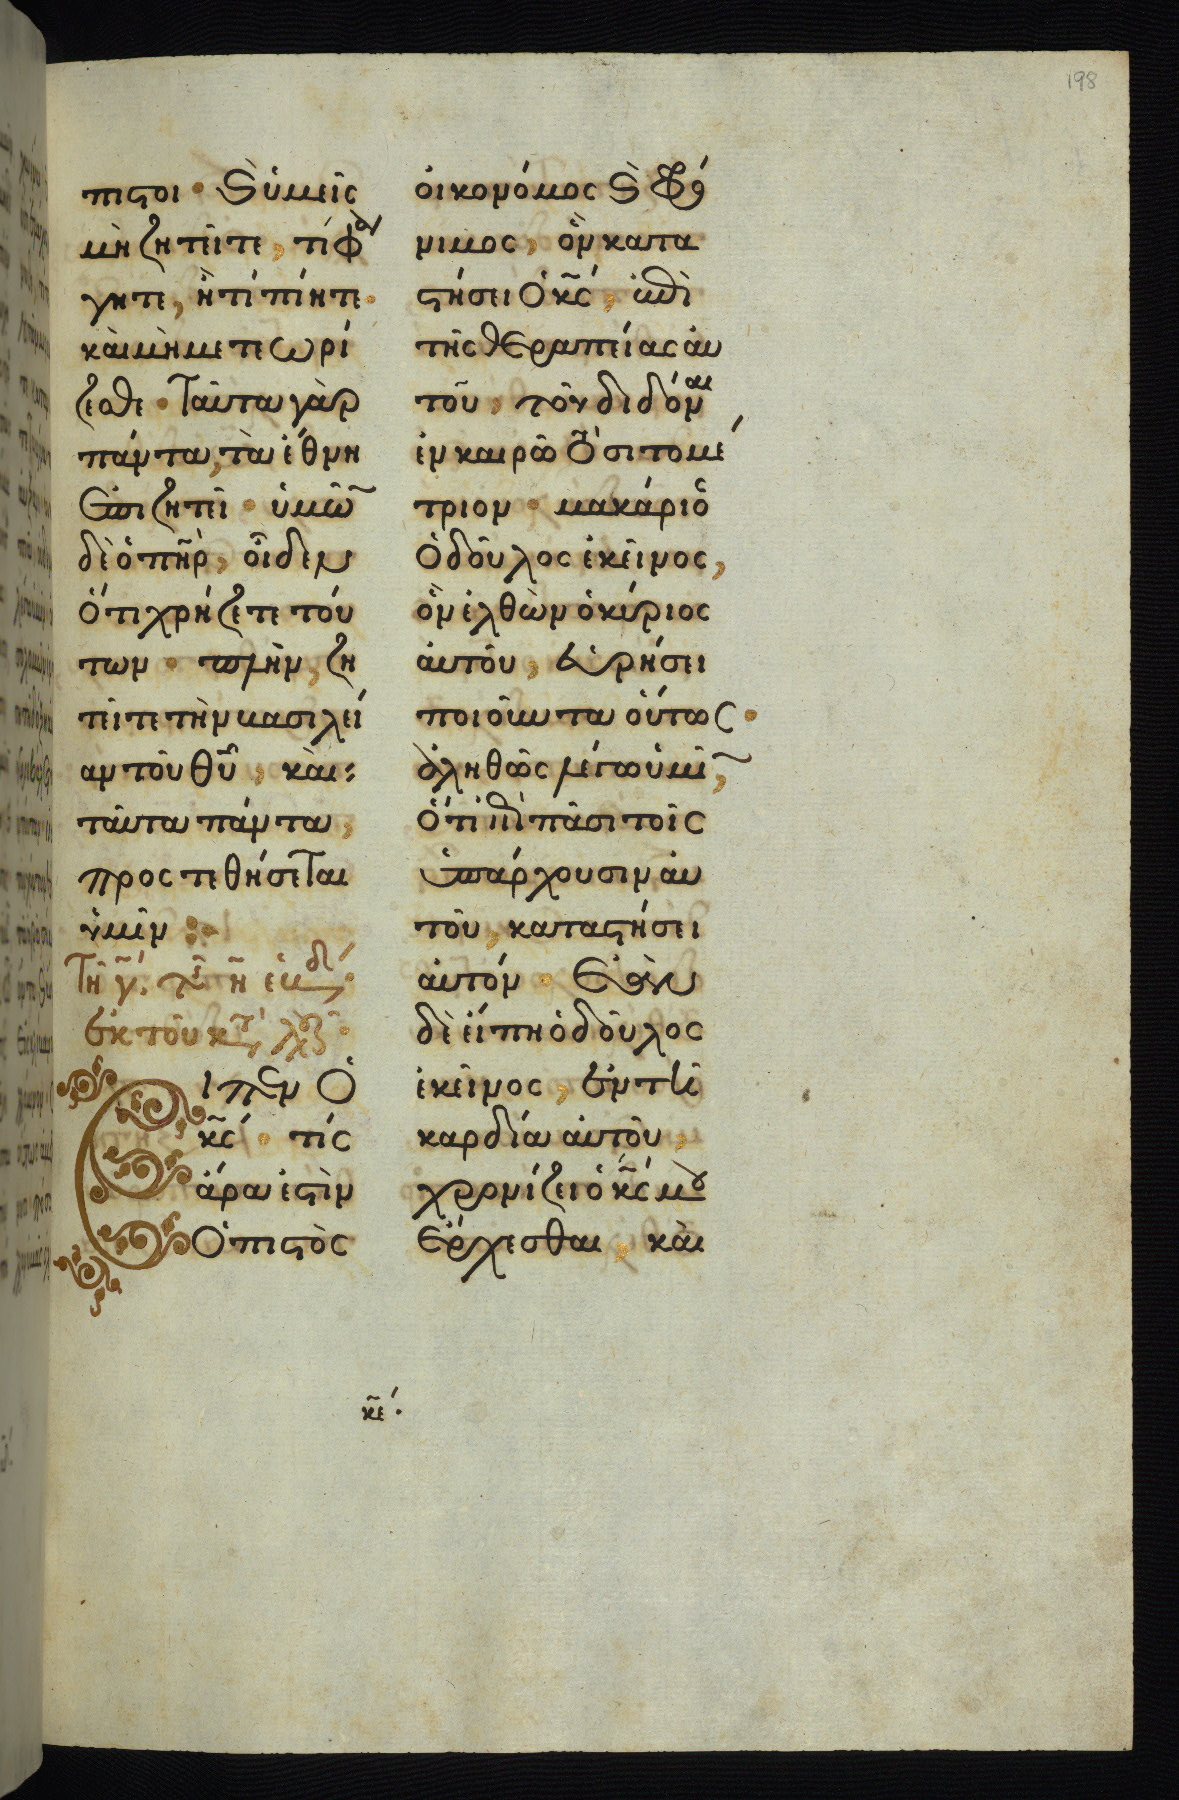 198
πιστοι · Ϗ ὑμεῖς
μὴ ζητεῖτε, τί φά
γητε, ἢ τί πίητε ·
καὶ μὴ μετεωρί
ζεσθε · Ταῦτα γὰρ
πάντα, τὰ ἔθνη
ἐπιζητεῖ · ὑμῶ̃
δὲ ὁ πη̃ρ, οἶδεν
ὅτι χρήζετε τού
των · πλὴν, ζη
τεῖτε τὴν βασιλεί
αν τοῦ θῦ, καὶ
ταῦτα πάντα,
προστεθήσεται
ὑμῖν :
Τῇ γ
ἐκ τοῦ κτ λκ
ιπεν ὁ
κς̃ · τίς
ἄρα ἐστὶν
ὁ πιστὸς
οἰκονόμος Ϗ φρό
νιμος, ὃν κατα
στήσει ὁ κς̃, ἐπὶ
τῆς θεραπείας αὐ
τοῦ, τοῦ διδόναι
ἐν καιρῶ τὸ σιτομέ
τριον · μακάριο
ὁ δοῦλος ἐκεῖνος,
ὃν ἐλθὼν ὁ κύριος
αὐτοῦ, εὑρήσει
ποιοῦντα οὕτως ·
ἀληθῶς λέγω ὑμῖ̃,
ὅτι ἐπὶ πᾶσι τοῖς
ὑπάρχουσιν αὐ
τοῦ, καταστήσει
αὐτόν · Ἐὰν
δὲ εἴπη ὁ δοῦλος
ἐκεῖνος, ἐν τῆ
καρδία αὐτοῦ,
χρονίζει ὁ κς̃ μου
ἔρχεσθαι, καὶ
κε̃ ·